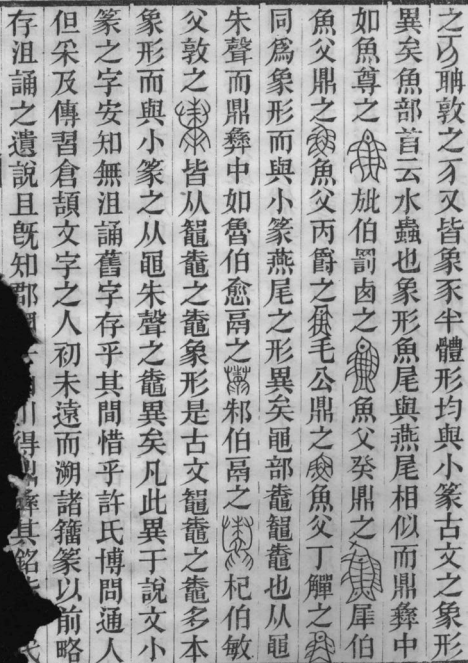 之𠀉聃敦之丂又皆象豕半體形均與小篆古文之象形
異矣魚部首云水蟲也象形魚尾與燕尾相似而鼎彝中
如魚尊之 旅伯罰卣之 魚父癸鼎之 犀伯
魚父鼎之 魚父丙爵之 毛公鼎之 魚父丁觶之
同爲象形而與小篆燕尾之形異矣黽部鼄鼅鼄也从黽
朱聲而鼎彝中如魯伯愈鬲之 邾伯鬲之 杞伯敏
父敦之 皆从鼅鼄之鼄象形是古文鼅鼄之鼄多本
象形而與小篆之从黽朱聲之鼄異矣凡此異于說文小
篆之字安知無沮誦舊字存乎其間惜乎許氏博問通人
但采及傳習倉頡文字之人初未遠而溯諸籀篆以前略
存沮誦之遺說且既知郡國 川得鼎彝其銘